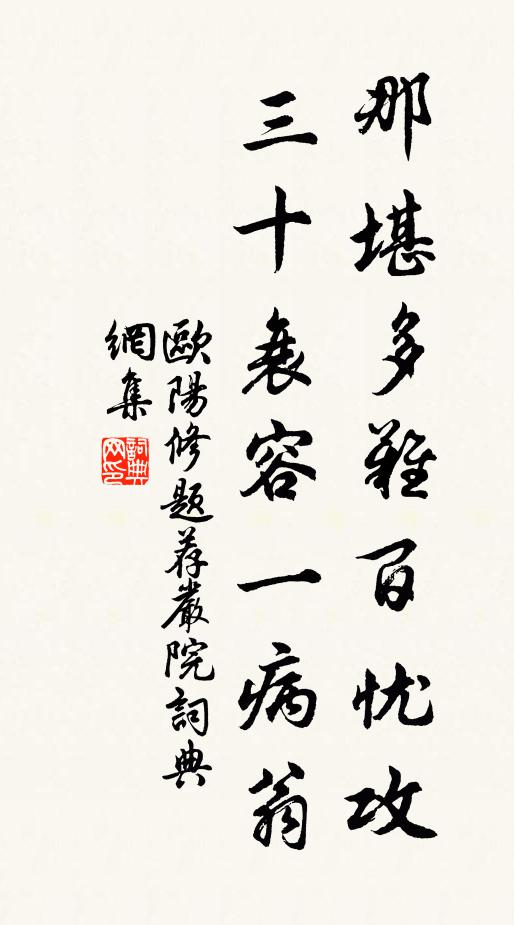 那堪多難百忧攻
三十衰容一病翁
歐陽修題荐嚴院詞典
網集
詞典网印